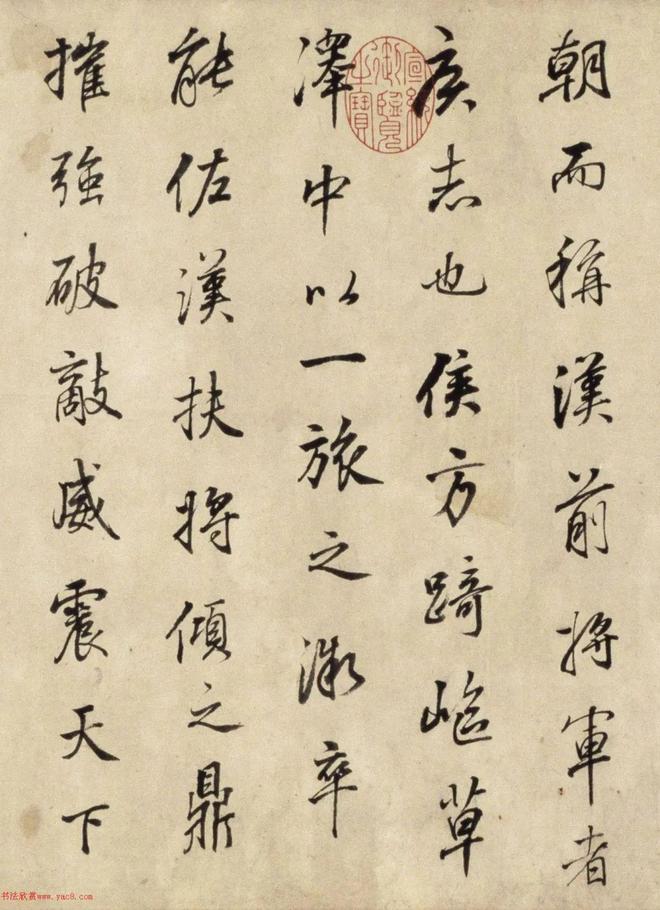 朝而稱漢前將軍者
侯志也侯方踦嶇草
澤中以一旅之微卒
能佐漢扶將傾之鼎
摧強破敵威震天下
宣統御覽之寶
书法欣赏www.yac8.com